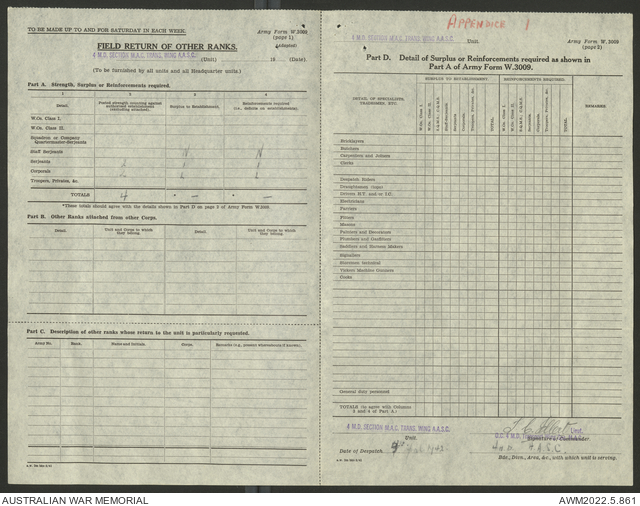 TO BE MADE UP TO AND FOR SATURDAY IN EACH WEEK.
Army Form W.3009
(page 1)
(Adapted)
FIELD RETURN OF OTHER RANKS.
4 M.D. SECTION M.A.C. TRANS. WING A.A.S.C. (Unit) 19 (Date)
(To be furnished by all units and all Headquarter units.)
Part A. Strength, Surplus or Reinforcements required.
1 2 3 4
Detail. Posted strength counting against authorised establishment (including attached). Surplus to Establishment. Reinforcements required
W.Os. Class I.
W.Os. Class II.
Squadron or Company
Quartermaster-Serjeants
Staff Serjeants
Serjeants
Corporals
Troopers, Privates, &c.
TOTALS 4 * - * -
*These totals should agree with the details shown in Part D on page 3 of Army Form W.3009.
Part B. Other Ranks attached from other Corps.
Detail. Unit and Corps to which they belong. Detail. Unit and Corps to which they belong.
Part C. Description of other ranks whose return to the unit is particularly requested.
Army No. Rank. Name and Initials. Corps. Remarks (e.g., present whereabouts if known).
APPENDICE 1
4 M.D. SECTION M.A.C. TRANS. WING A.A.S.C. Unit.
Army Form W.3009
Part D. Detail of Surplus or Reinforcements required as shown in
Part A of Army Form W.3009.
DETAIL OF SPECIALISTS, TRADESMEN, ETC.
SURPLUS TO ESTABLISHMENT. REINFORCEMENTS REQUIRED.
REMARKS
W.Os. Class I. W.Os. Class II. Staff-Serjeants Serjeants Corporals Troopers, Privates, &c. TOTAL
W.Os. Class I. W.Os. Class II. Serjeants Corporals Troopers, Privates, &c. TOTAL.
Bricklayers
Butchers
Carpenters and Joiners
Clerks
Despatch Riders
Draughtsmen
Drivers H.T. and/or I.C.
Electricians
Farriers
Fitters
Masons
Painters and Decorators
Plumbers and Gasfitters
Saddlers and Harness Makers
Signallers
Storemen
Vickers Machine Gunners
Cooks
General duty personnel
TOTALS (to agree with Columns
3 and 4 of Part A.)
4 M.D. SECTION M.A.C. TRANS. WING A.A.S.C.
Unit.
Lieut.
O.C. 4 M.D.
Signature of Commander.
Date of Despatch
A.A.S.C.
Bde., Divn., Area, &c., with which unit is serving.
AUSTRALIAN WAR MEMORIAL
AWM2022.5.861